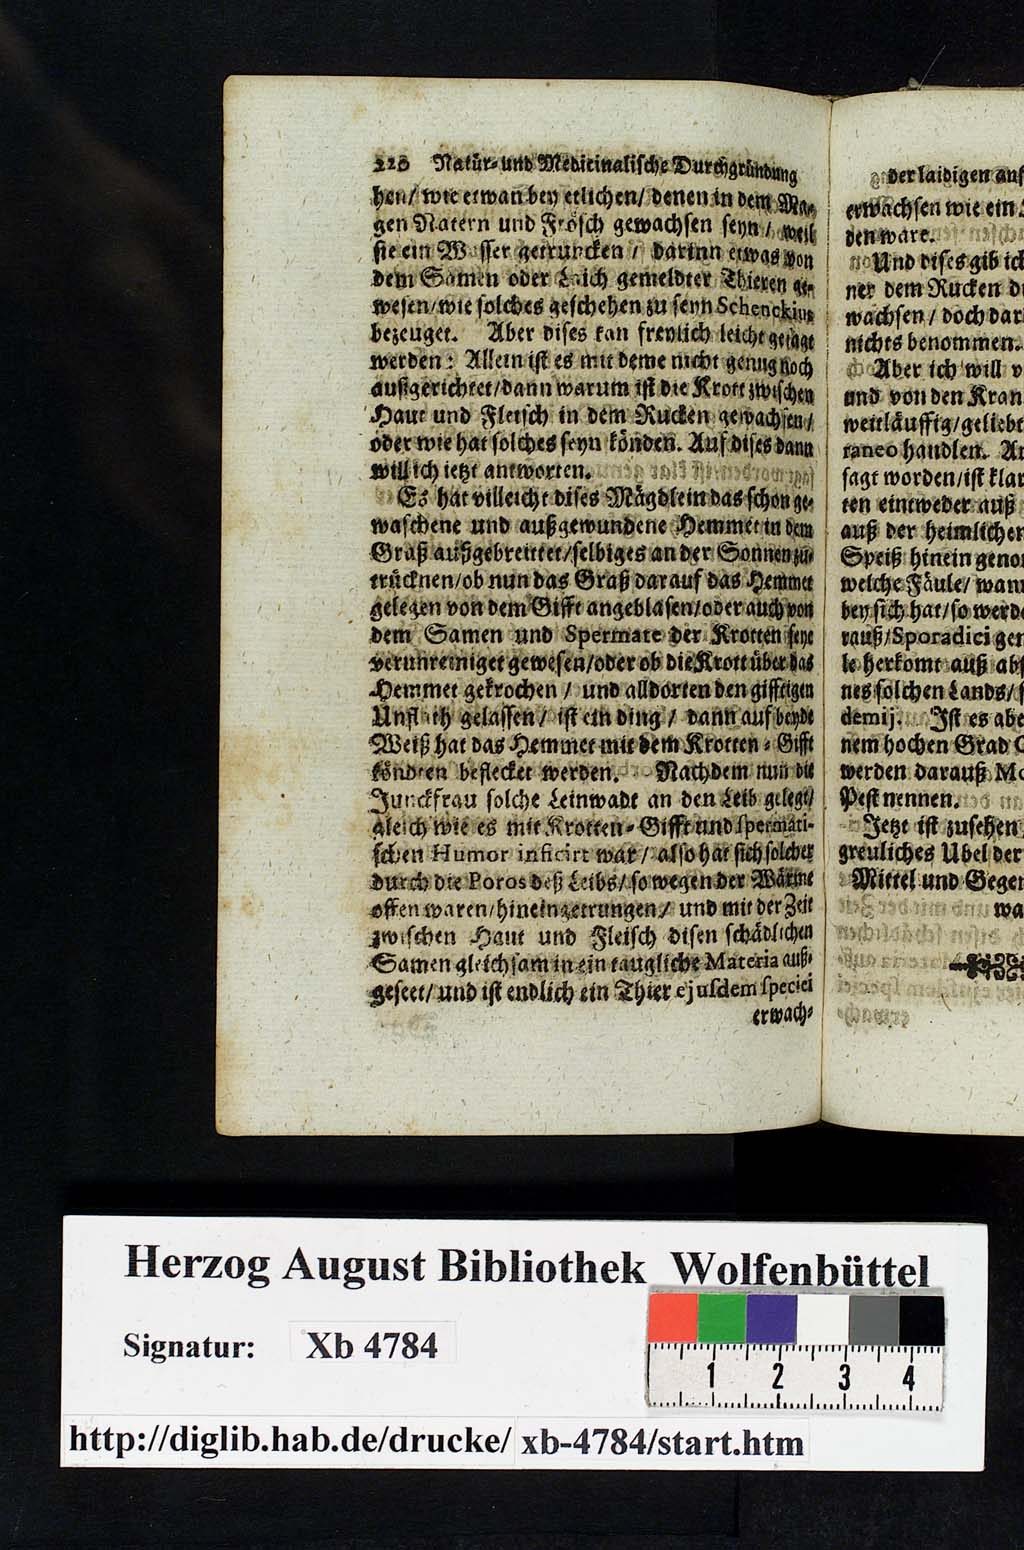 220 Natür- und Medicinalische Durchgründung
hen/ wie etwan bey etlichen/ denen in dem Ma-
gen Natern und Frösch gewachsen seyn/ weil
sie ein Wasser getruncken / darinn etwas von
dem Samen oder Laich gemeldter Thieren ge-
wesen/ wie solches geschehen zu seyn Schenckius
bezeuget. Aber dises kan freylich leicht gesagt
werden: Allein ist es mit deme nicht genug noch
außgerichtet/ dann warum ist die Krott zwischen
Haut und Fleisch in dem Rucken gewachsen/
oder wie hat solches seyn könden. Auf dises dann
will ich jetzt antworten.
Es hat villeicht dises Mägdlein das schon ge-
waschene und außgewundene Hemmet in dem
Graß außgebreittet/ selbiges an der Sonnen zu-
trücknen/ ob nun das Graß darauf das Hemmet
gelegen von dem Gifft angeblasen/ oder auch von
dem Samen und Spermate der Krotten seye
verunreiniget gewesen/ oder ob die Krott über das
Hemmet gekrochen / und alldorten den gifftigen
Unflath gelassen/ ist ein ding / dann auf beyde
Weiß hat das Hemmet mit dem Krotten-Gifft
köndten beflecket werden. Nachdem nun die
Junckfrau solche Leinwadt an den Leib gelegt/
gleich wie es mit Krotten-Gifft und spermati-
schen Humor inficirt war/ also hat sich solcher
durch die Poros deß Leibs/ so wegen der Wärme
offen waren/ hineingetrungen/ und mit der Zeit
zwischen Haut und Fleisch disen schädlichen
Samen gleichsam in ein taugliche Materia auß-
geseet/ und ist endlich ein Thier ejusdem speciei
erwach-
der laidigen auf
erwachsen wie ein
den ware.
Und dises gib ich
ner dem Rucken
wachsen/ doch
nichts benommen.
Aber ich will
und von den
weitläuffig/
raneo handlen.
sagt worden/ ist klar
ten eintweder auß
auß der heimlichen
Speiß hinein
welche Fäule/
bey sich hat/ so
rauß/ Sporadici
le herkomt auß
nes solchen Lands/
demij. Ist es aber
nem hochen Grad
werden darauß
Pest nennen.
Jetzt ist zusehen
greuliches Ubel der
Mittel und
Herzog August Bibliothek Wolfenbüttel
Signatur: Xb 4784
1 2 3 4
http://diglib.hab.de/drucke/ xb-4784/start.htm